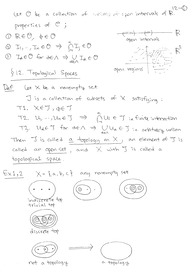 12-①
Let O be a collection of open intervals of R
properties of O ;
① R∈O, ∅∈O
② I₁,…,Iₙ∈O ⇒ ⋂Iᵢ∈O
③ Iα∈O for α∈Λ ⇒ ⋃Iα∈O
R
open intervals
R²
open regions
§12. Topological Spaces
Def Let X be a nonempty set
J is a collection of subsets of X satisfying
T1. X∈J, ∅∈J
T2. U₁,…,Uₙ∈J ⇒ ⋂Uᵢ∈J ie finite intersection
T3. Uα∈J for α∈Λ ⇒ ⋃Uα∈J ie arbitrary union
Then J is called a topology on X, an element of J is
called an open set, and X with J is called a
topological space.
Ex 1,2 X={a,b,c} any nonempty set
indiscrete top
trivial top
discrete top
not a topology
a topology